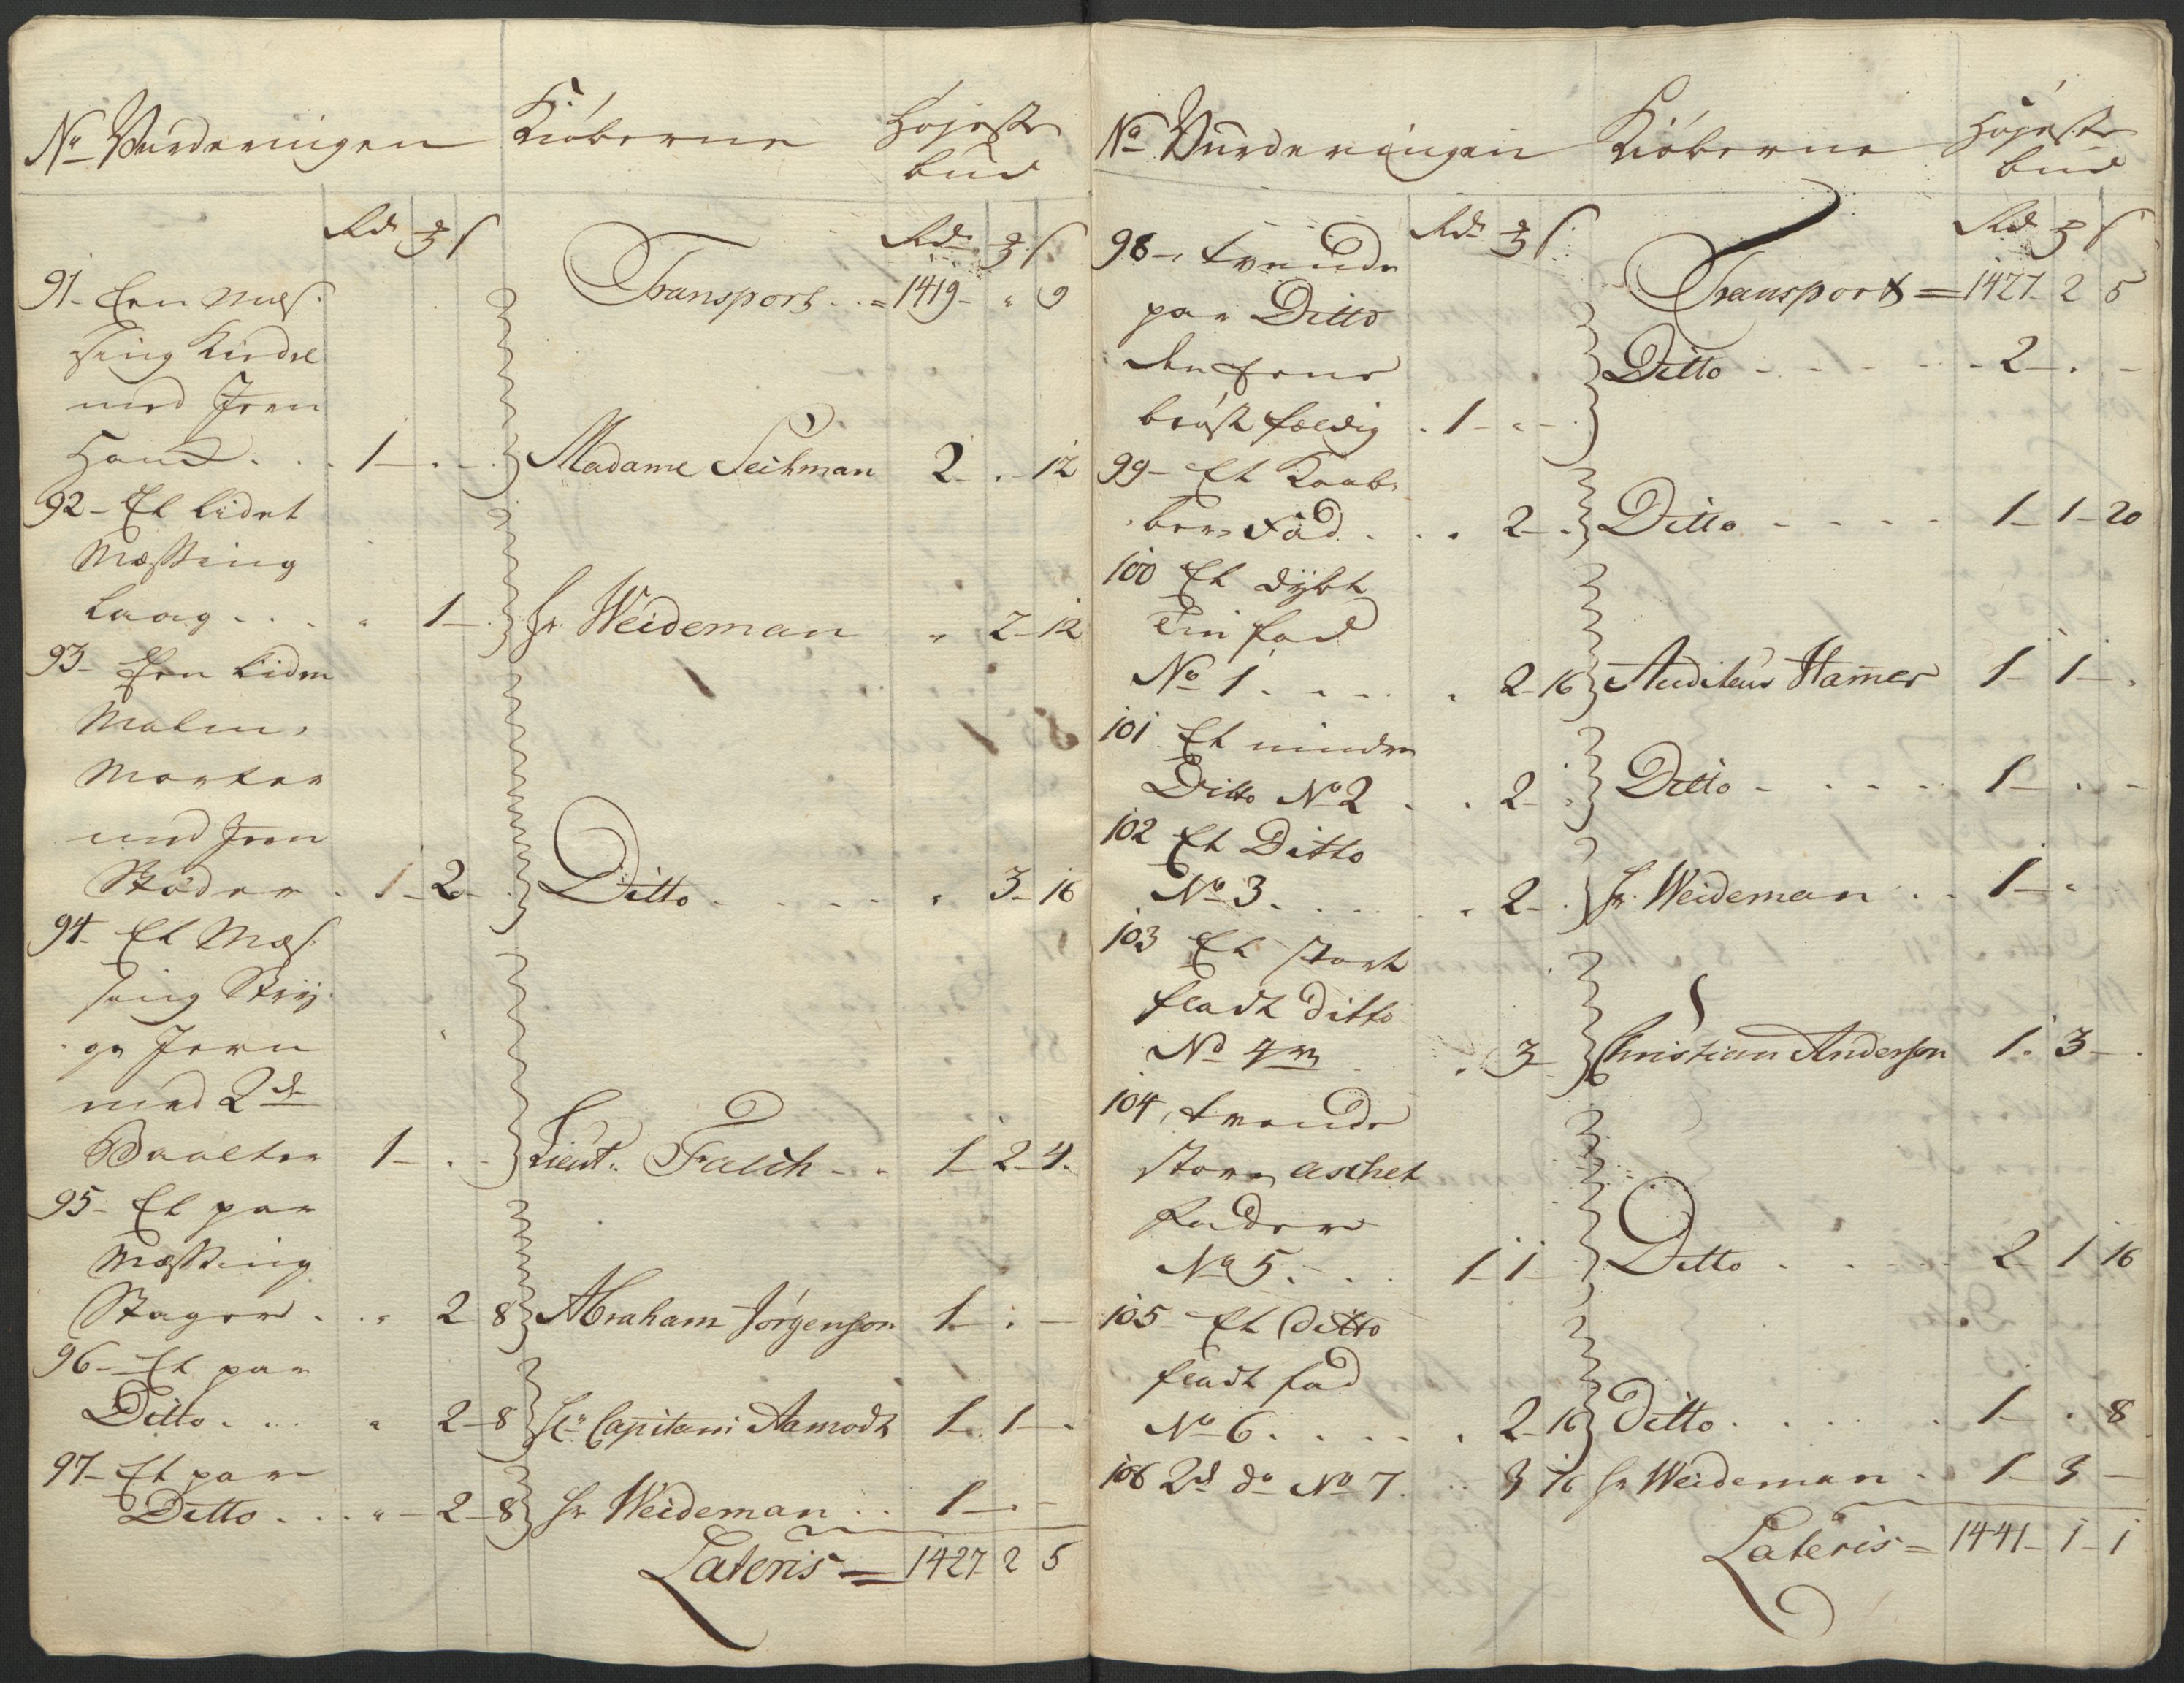 No Vurderingen Kiøberne Høyeste
bud
Rd ℥ s
Transport .. = 1419 - " 9
91 - Een Mes-
sing Kiedel
med Jern
Hanck . . . 1 - . - Madame Seihman 2 - . - 12
92 - Et lidet
Messing
Laag . . . " 1 - . Sr Weideman " 2 - 12
93 - Een liden
Malm,
Morter
med Jern
Støder . 1 - 2 - . Ditto . . . . " 3 - 16
94 - Et Mes-
sing Stry-
ge Jern
med 2de
Baalter 1 - . - Lieut: Falch - . 1 - 2 - 4.
95 - Et par
Messing
Stager . . " 2 8 Abraham Jörgenson 1 - . -
96 - Et par
Ditto . . . " 2 - 8 Hr Capitain Aamodt 1 . 1 - .
97 - Et par
Ditto . . . " - 2 - 8 Sr Weideman . . 1 - . -
Lateris = 1427 2 5
No Vurderingen Kiøberne Høyeste
bud
Rd ℥ s
98 - tvende
Transport = 1427 - 2 5
par Ditto
den eene
Ditto - - - - - 2 - . -
brøstfeldig . 1 - " -
99 - Et Kaab-
ber Fad . . . 2 - . Ditto - - - - 1 - 1 - 20
100 Et dybt
Tin fad
No 1 . - . . . 2 - 16 Auditeur Hamer 1 - 1 - .
101 Et mindre
Ditto No 2 . . 2 - . Ditto - . . . . 1 - . -
102 Et Ditto
No 3 . . . . . 2 - . Sr. Weideman . . 1 - "
103 Et stort
fladt ditto
No 4 . 3 - Christian Anderson 1 . 3 - .
104, tvende
store aschet
fader
No 5 . - . . 1 - 1 - Ditto . . . . 2 - 1 16
105 - Et Ditto
fladt fad
No 6 . . . . . 2 - 16 Ditto . . . . . 1 - . 8
106 2de do No 7 . . 3 16 Sr Weideman . 1 - 3 -
Lateris = 1441 - 1 - 1